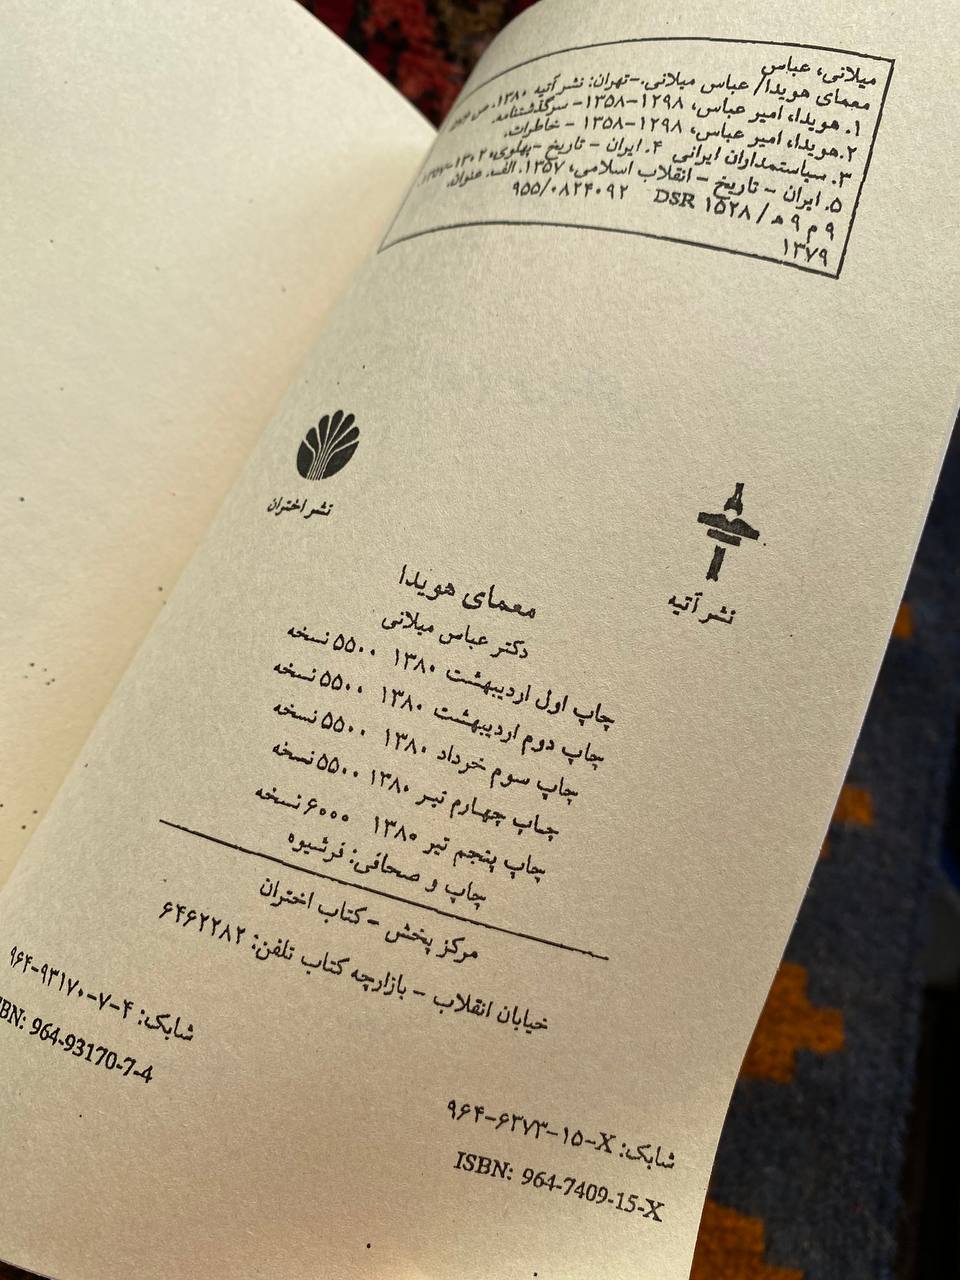 میلانی، عباس
معمای هویدا/ عباس میلانی.-تهران: نشر آتیه ۱۳۸۰. ص
۱. هویدا، امیر عباس، ۱۲۹۸-۱۳۵۸- سرگذشتنامه.
۲.هویدا، امیر عباس، ۱۲۹۸-۱۳۵۸ - خاطرات.
۳. سیاستمداران ایرانی ۴. ایران - تاریخ -پهلوی،
۵. ایران - تاریخ - انقلاب اسلامی، ۱۳۵۷. الف. عنوان.
۹ م ۹ ه / DSR ۱۵۲۸ ۹۵۵/۰۸۲۴۰۹۲
۱۳۷۹
نشر اختران
نشر آتیه
معمای هویدا
دکتر عباس میلانی
چاپ اول اردیبهشت ۱۳۸۰ ۵۵۰۰ نسخه
چاپ دوم اردیبهشت ۱۳۸۰ ۵۵۰۰ نسخه
چاپ سوم خرداد ۱۳۸۰ ۵۵۰۰ نسخه
چاپ چهارم تیر ۱۳۸۰ ۵۵۰۰ نسخه
چاپ پنجم تیر ۱۳۸۰ ۶۰۰۰ نسخه
چاپ و صحافی: فرشیوه
مرکز پخش - کتاب اختران
خیابان انقلاب - بازارچه کتاب تلفن: ۶۴۶۲۲۸۲
شابک: ۴-۷-۹۳۱۷۰-۹۶۴
ISBN: 964-93170-7-4
شابک: X-۱۵-۶۳۷۳-۹۶۴
ISBN: 964-7409-15-X